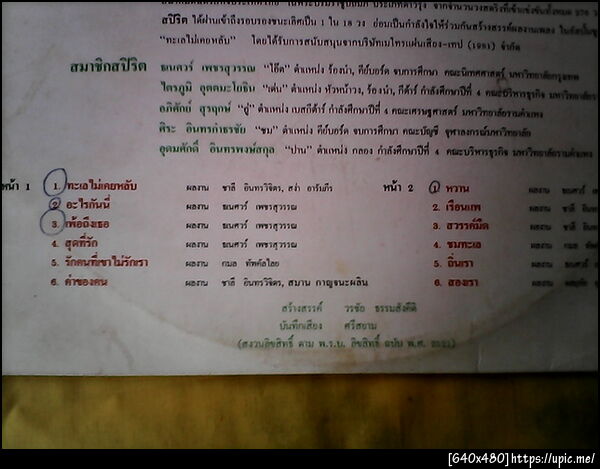 สปิริต ได้ผ่านเข้าถึงรอบรองชนะเลิศเป็น 1 ใน 18 วง ย่อมเป็นกำลังใจให้ร่วมกันสร้างสรรค์ผลงานเพลง
"ทะเลไม่เคยหลับ" โดยได้รับการสนับสนุนจากบริษัทเมโทรแผ่นเสียง-เทป (1981) จำกัด
สมาชิกสปิริต ธนศวร์ เพชรสุวรรณ "โอ๊ต" ตำแหน่ง ร้องนำ, คีย์บอร์ด จบการศึกษา คณะนิเทศศาสตร์ มหาวิทยาลัยกรุงเทพ
ไตรภูมิ อุตตมะโยธิน "เต่น" ตำแหน่ง หัวหน้าวง, ร้องนำ, กีต้าร์ กำลังศึกษาปีที่ 4 คณะบริหารธุรกิจ
อภิศักย์ สุรฤกษ์ "อู๋" ตำแหน่ง เบสกีต้าร์ กำลังศึกษาปีที่ 4 คณะเศรษฐศาสตร์ มหาวิทยาลัยรามคำแหง
ศิระ อินทรกำธรชัย "ชม" ตำแหน่ง คีย์บอร์ด จบการศึกษา คณะบัญชี จุฬาลงกรณ์มหาวิทยาลัย
อุดมศักดิ์ อินทรพงษ์สกุล "ปาน" ตำแหน่ง กลอง กำลังศึกษาปีที่ 4 คณะบริหารธุรกิจ มหาวิทยาลัยรามคำแหง
หน้า 1 1. ทะเลไม่เคยหลับ ผลงาน ชาลี อินทรวิจิตร, สง่า อารัมภีร หน้า 2 1 หวาน ผลงาน ธนศวร์
2 อะไรกันนี่ ผลงาน ธนศวร์ เพชรสุวรรณ 2. เรือนแพ ผลงาน ชาลี
3. เพ้อถึงเธอ ผลงาน ธนศวร์ เพชรสุวรรณ 3. สวรรค์มืด ผลงาน
4. สุดที่รัก ผลงาน ธนศวร์ เพชรสุวรรณ 4. ชมทะเล ผลงาน กมล
5. รักคนที่เขาไม่รักเรา ผลงาน กมล ทัพคัลไลย 5. ถิ่นเรา ผลงาน ธนศวร์
6. ค่าของคน ผลงาน ชาลี อินทรวิจิตร, สมาน กาญจนะผลิน 6. สองเรา ผลงาน
สร้างสรรค์ วรชัย ธรรมสังคีติ
บันทึกเสียง ศรีสยาม
(สงวนลิขสิทธิ์ ตาม พ.ร.บ. ลิขสิทธิ์ ฉบับ พ.ศ. 2521)
[640x480]https://upic.me/